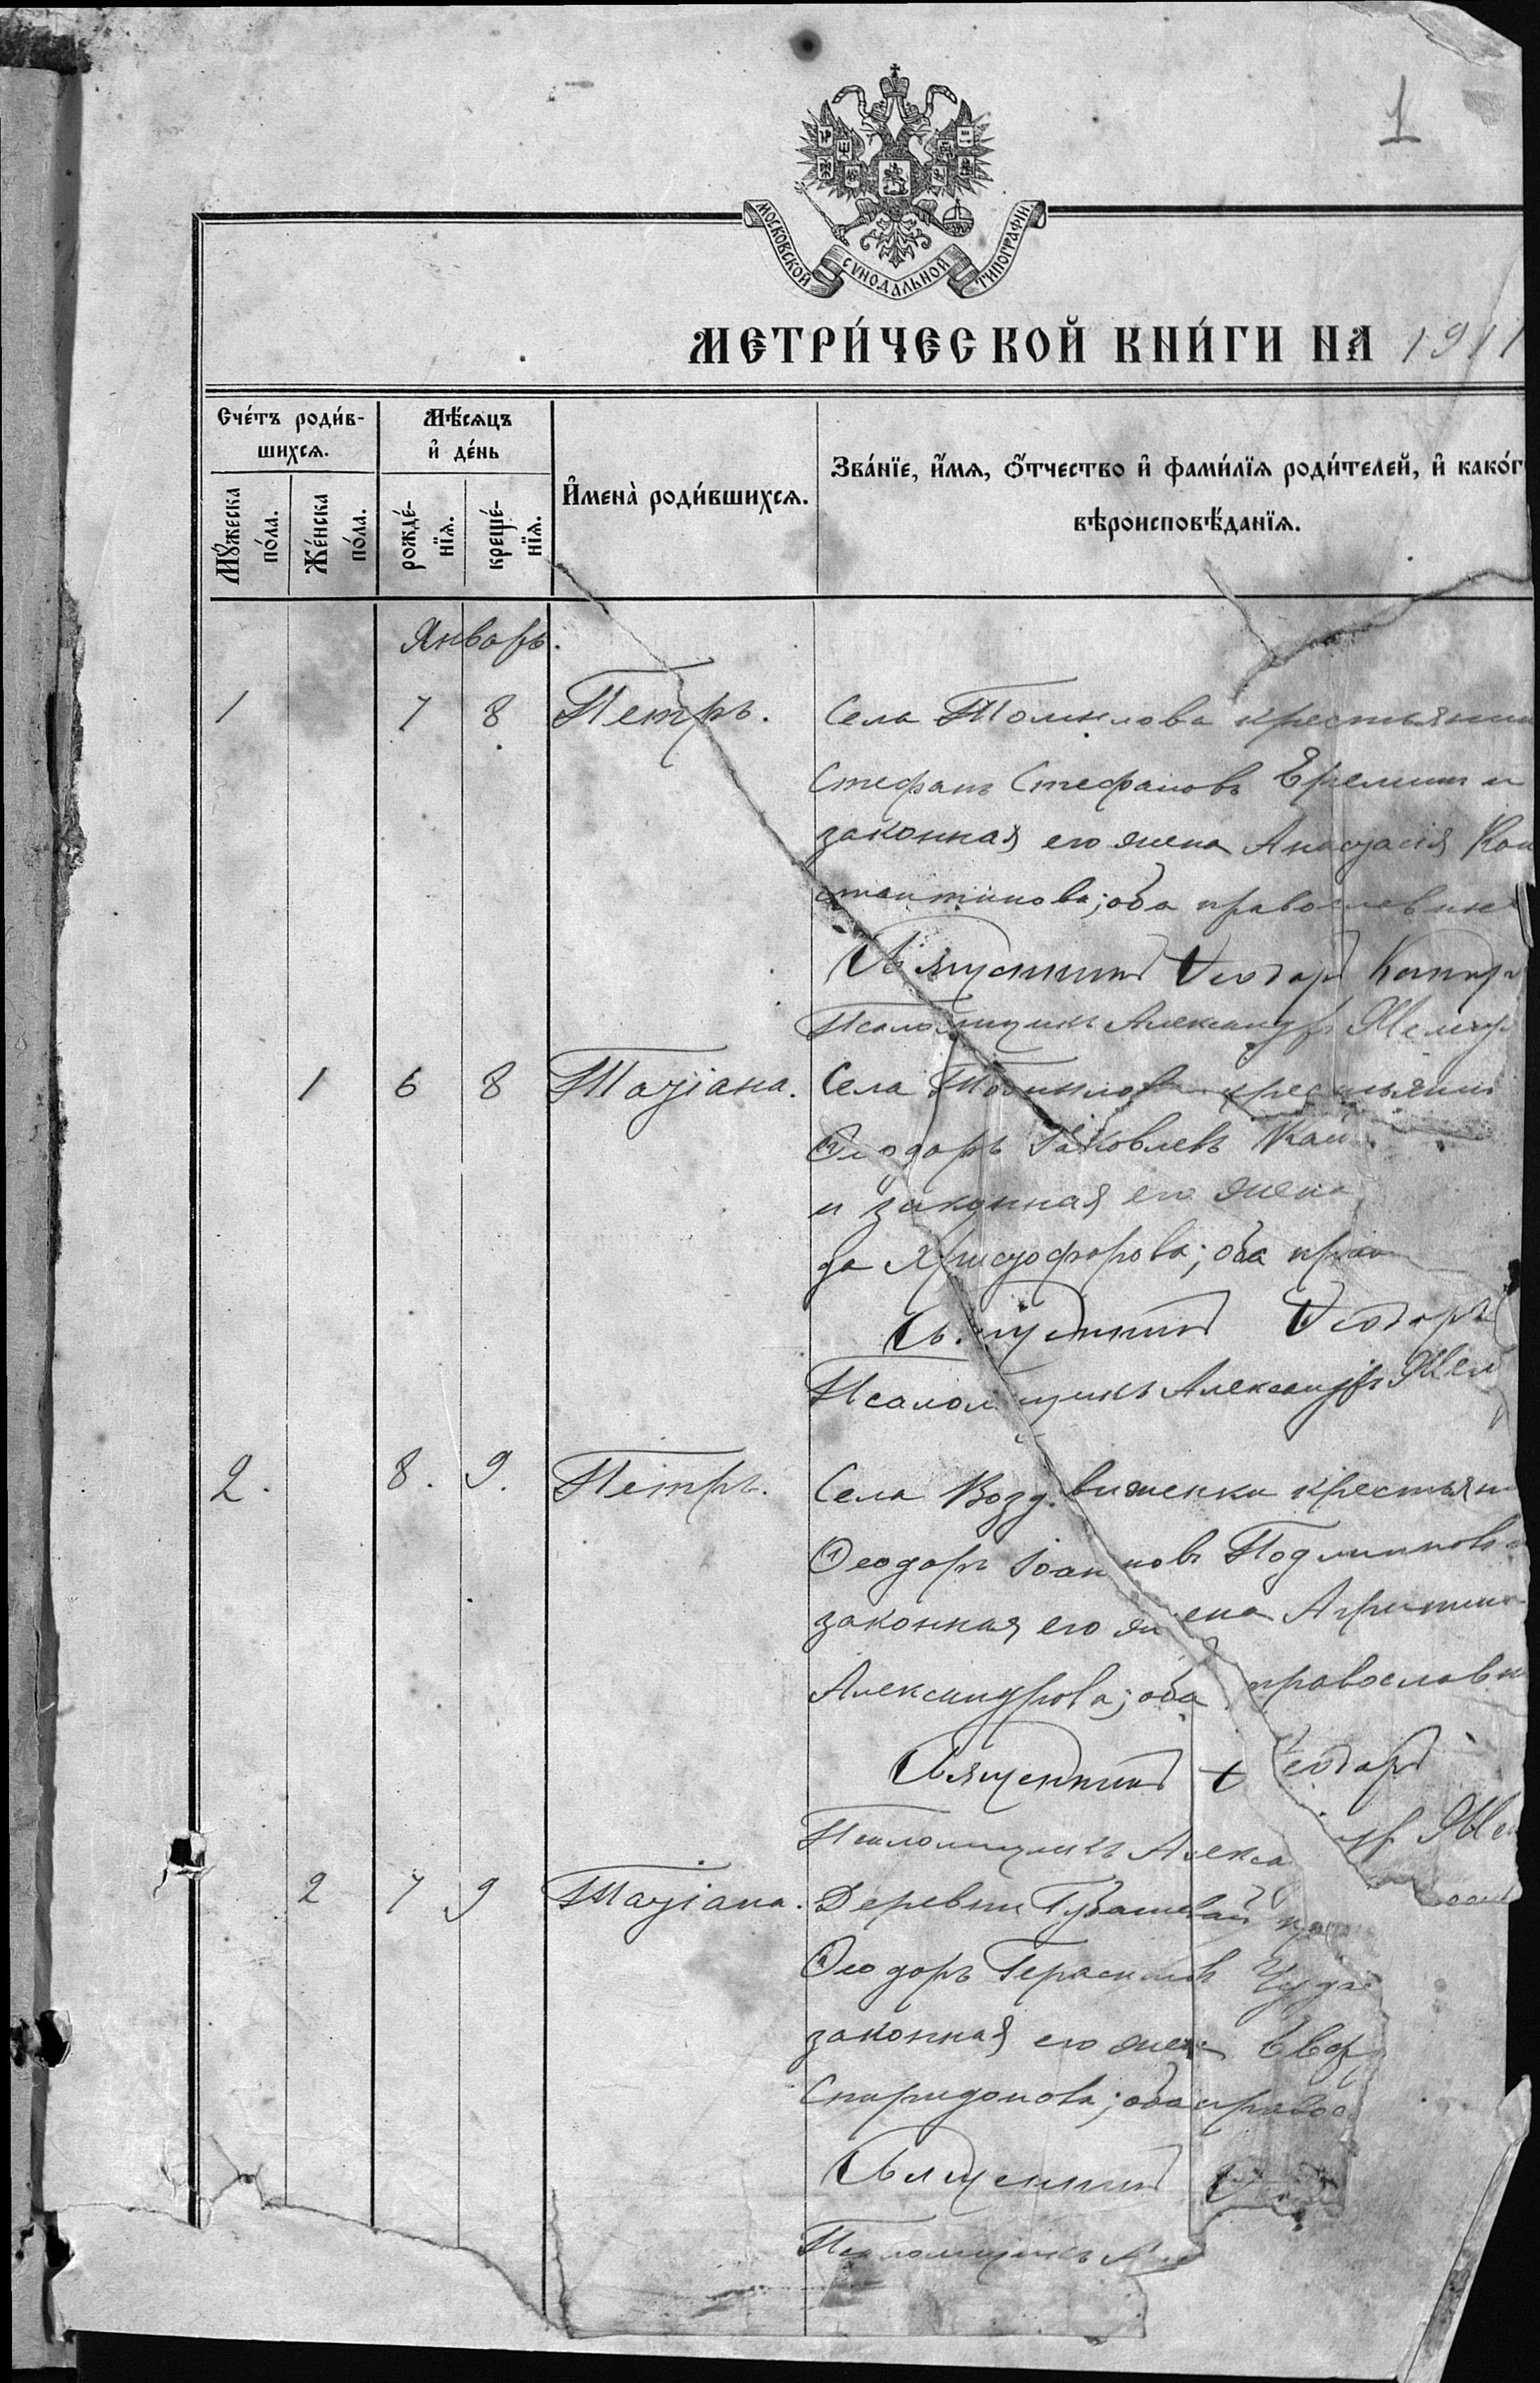 1
МОСКОВСКОЙ СѴНОДАЛЬНОЙ ТИПОГРАФІИ
МЕТРИ́ЧЕСКОЙ КНИ́ГИ НА 1911
Сче́тъ роди́в-
шихсѧ.
Мѣ́сѧцъ
и҆ де́нь
И҆мена̀ роди́вшихсѧ.
Зва́нїе, и҆́мѧ, Ѻ҆́тчество и҆ фами́лїѧ роди́телей, и҆ како́г
вѣроисповѣ́данїѧ.
Мꙋ́жеска
по́ла.
Же́нска
по́ла.
рожде́-
нїѧ.
креще́-
нїѧ.
Январь.
1 7 8 Петръ. Села Томилова крестьянин
Стефанъ Стефановъ Еремин и
законная его жена Анастасія Кон
стантинова; оба православные
Священникъ Ѳеодоръ
Псаломщикъ Александръ
1 6 8 Татіана. Села Томилова крестьянин
Ѳеодоръ Іаковлевъ Кай
и законная его жена
да Христофорова; оба прав
Священникъ Ѳеодоръ
Псаломщикъ Александръ
2. 8. 9. Петръ. Села Воздвиженки крестьян
Ѳеодоръ Іоанновъ
законная его жена Агриппина
Александрова; оба православн
Священникъ Ѳеодоръ
Псаломщикъ Алекса
2 7 9 Татіана. Деревни Губашевой кр
Ѳеодоръ Герасимовъ Чуда
законная его жена Евф
Спиридонова; оба правос
Священникъ Ѳ
Псаломщикъ Ал